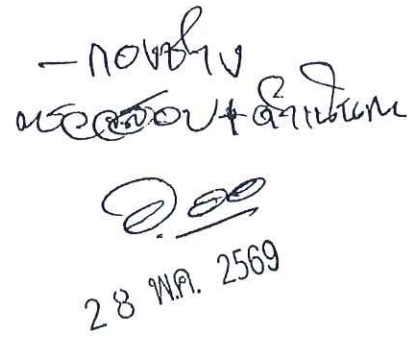 - กองช่าง
ตรวจสอบ + ดำเนินการ
28 พ.ค. 2569